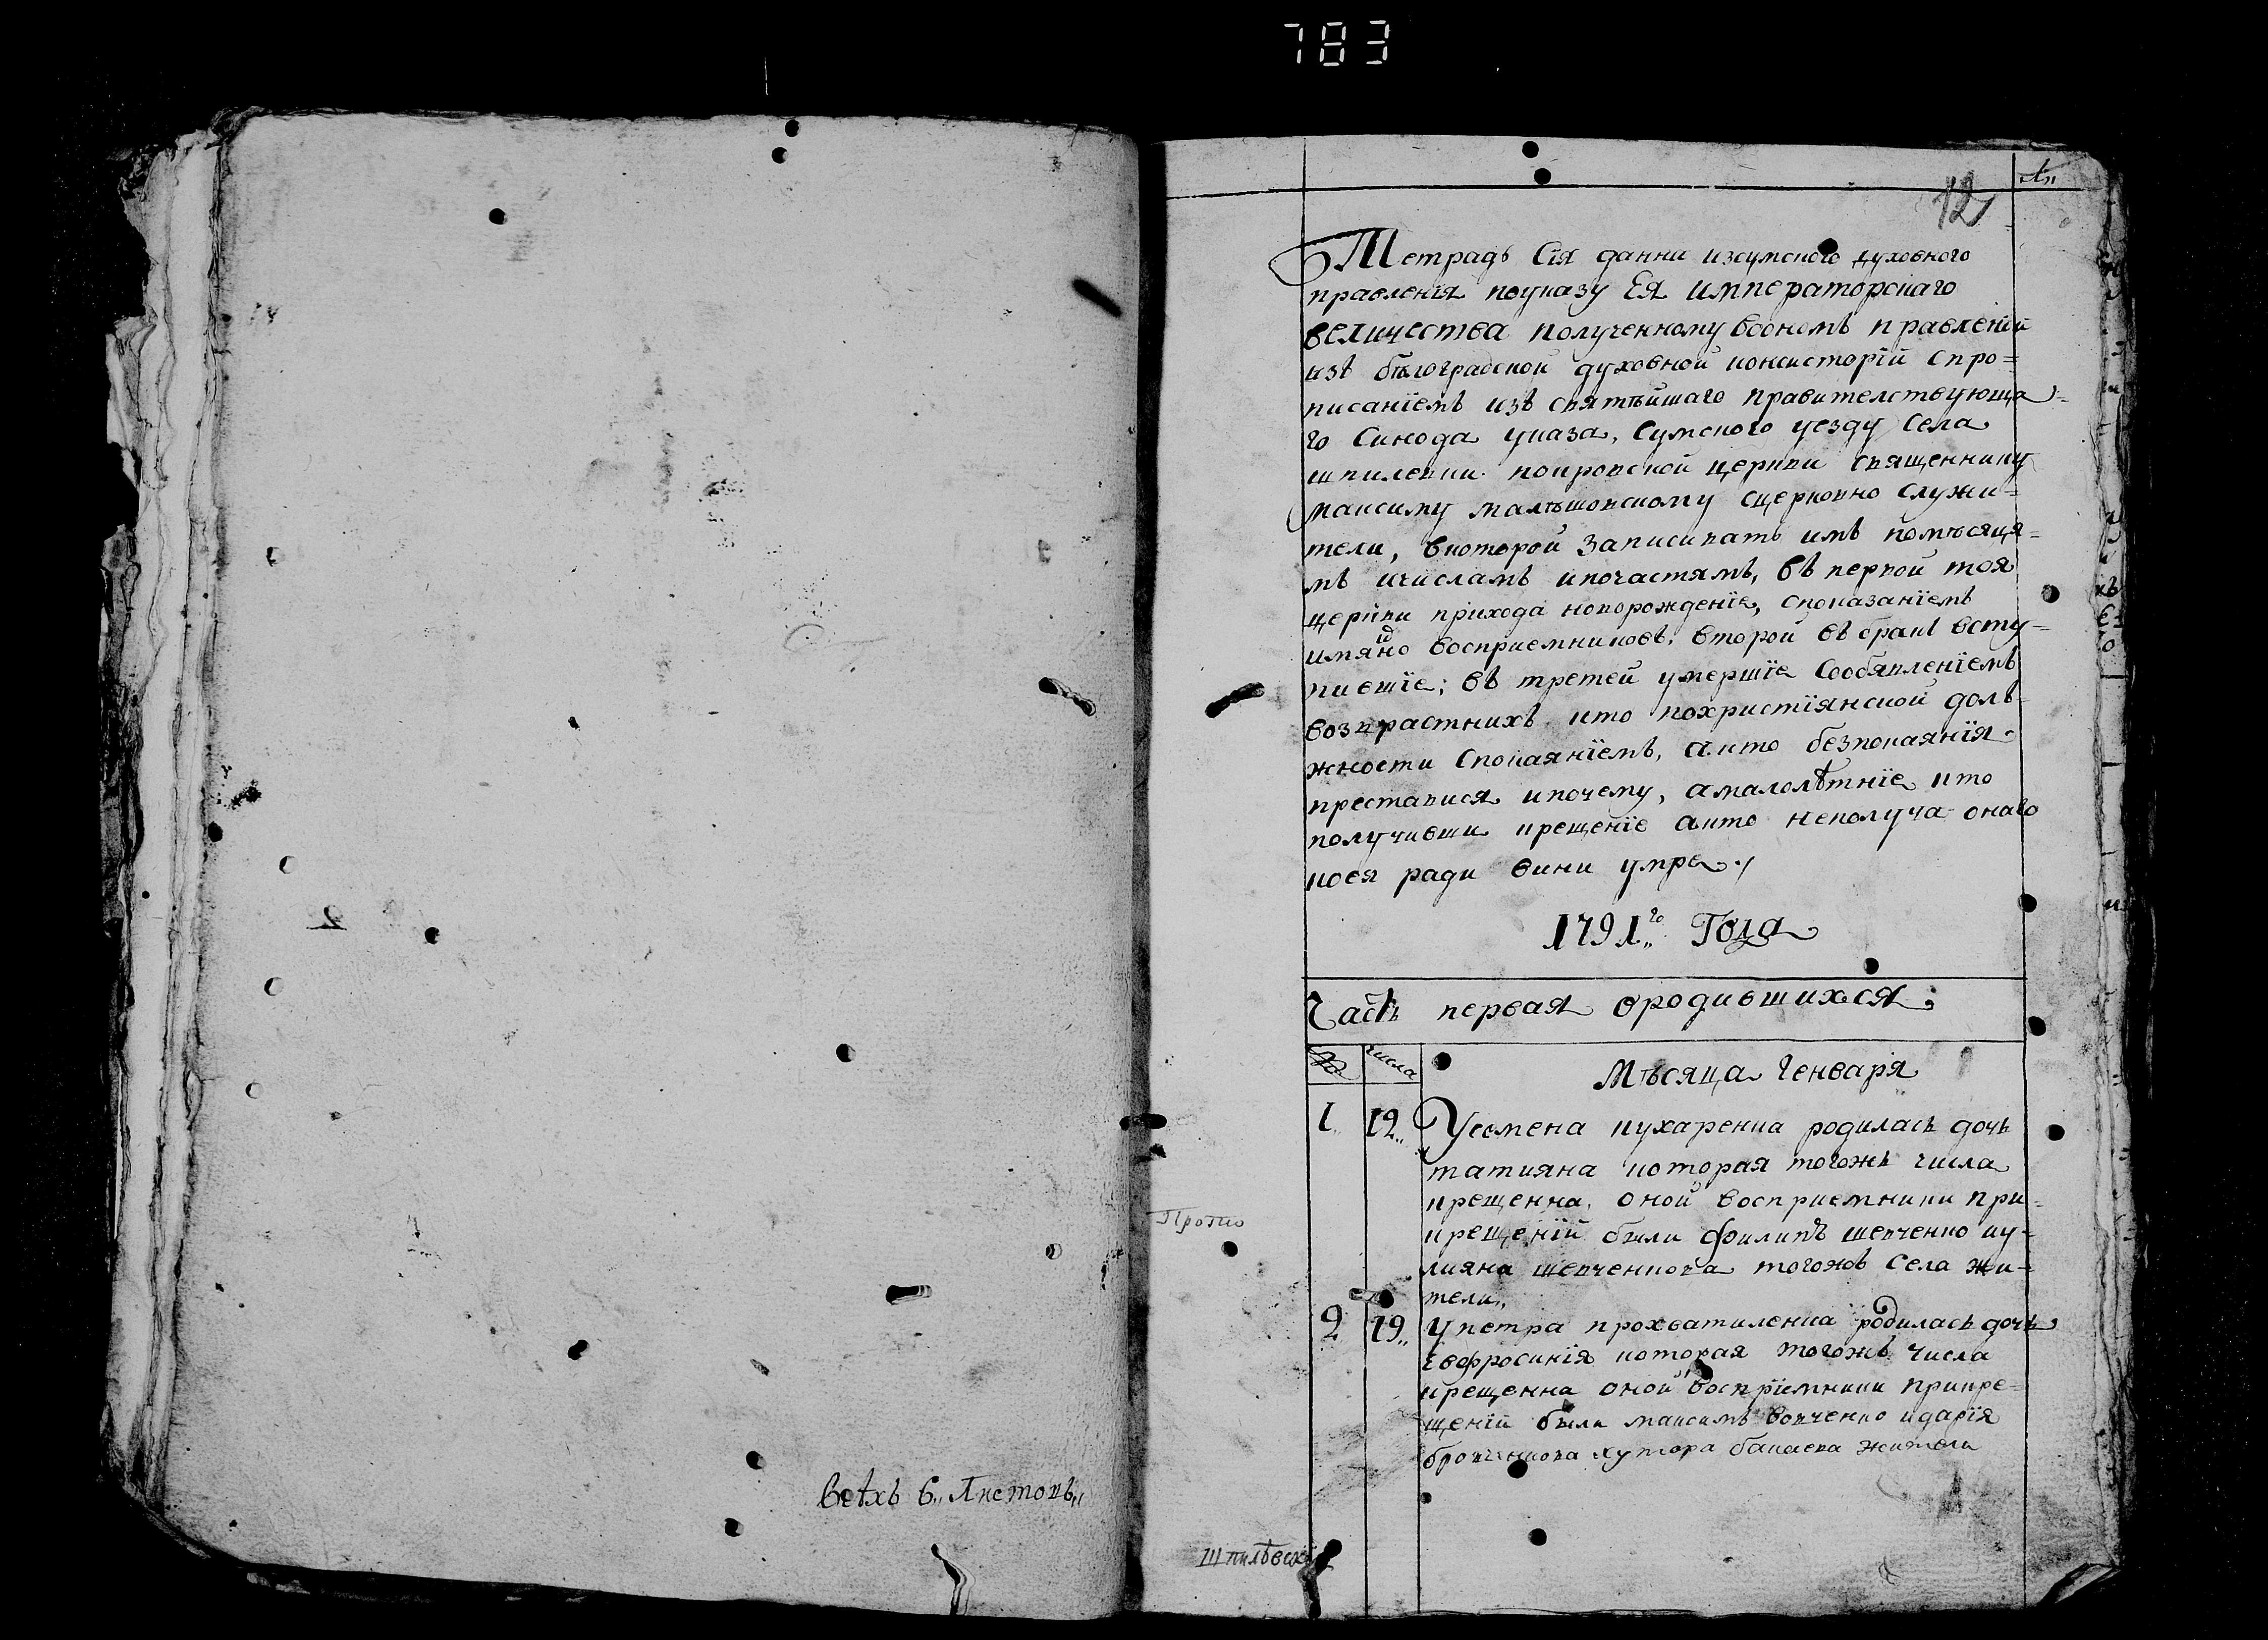 783
Всѣхъ 6,, Листовъ,,
12
Тетрадь Сїя данни изсумского духовного
правленїя поуказу Ея императорскаго
величества полученному воономъ правленїи
изъ бѣлоградской духовной консисторїй спро=
писанїемъ изъ святѣйшаго правителствующа=
го Синода указа, Сумского уезду Села
шпилевки покровской церкви священнику
максиму малѣшовскому сцерковно служи=
тели, вкоторой записивать имъ помѣсяця=
мъ ичисламъ ипочастямъ, въ первой тоя
церкви прихода новорожденїе, споказанїемъ
имянно восприемниковъ, второй въ бракъ всту=
пившїе; въ третей умершїе Сообявленїемъ
возврастнихъ кто похристїянской долъ=
жности Спокаянїемъ, акто безпокаянїя
преставися ипочему, амалолѣтнїе кто
получивши крещенїе акто неполуча онаго
коея ради вини умре ./
1791,,го Года
Часть первая ородившихся:
числа
Мѣсяца Генваря
1,, 12,, Усемена кухаренка родилась дочь
татияна которая тогожъ числа
крещенна, оной восприемники при=
крещенїй были филипъ шевченко иу=
лияна шевченкова тогожъ Села жи=
тели,,
2 19,, Упетра прохватиленка родилась дочь
Евфросинїя которая тогожъ числа
крещенна оной воспрїемники прикре=
щенїй были максимъ вовченко идарїя
бровченкова хутора бакаева жители
Шпилѣвск